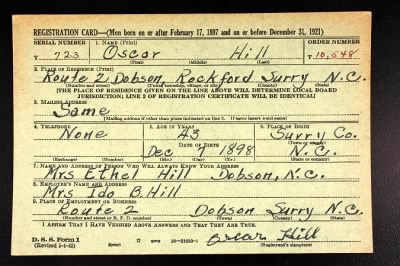 REGISTRATION CARD—(Men born on or after February 17, 1897 and on or before December 31, 1921)
SERIAL NUMBER 1. NAME (Print) ORDER NUMBER
T 723 Oscar Hill T 10,548
(First) (Middle) (Last)
2. PLACE OF RESIDENCE (Print)
Route 2 Dobson, Rockford Surry N.C.
(Number and street) (Town, township, village, or city) (County) (State)
[THE PLACE OF RESIDENCE GIVEN ON THE LINE ABOVE WILL DETERMINE LOCAL BOARD
JURISDICTION; LINE 2 OF REGISTRATION CERTIFICATE WILL BE IDENTICAL]
3. MAILING ADDRESS
Same
[Mailing address if other than place indicated on line 2. If same insert word same]
4. TELEPHONE 5. AGE IN YEARS 6. PLACE OF BIRTH
None 43 Surry Co.
DATE OF BIRTH (Town or county)
Dec 9 1898 N.C.
(Exchange) (Number) (Mo.) (Day) (Yr.) (State or country)
7. NAME AND ADDRESS OF PERSON WHO WILL ALWAYS KNOW YOUR ADDRESS
Mrs Ethel Hill Dobson, N.C.
8. EMPLOYER'S NAME AND ADDRESS
Mrs Ida B. Hill
9. PLACE OF EMPLOYMENT OR BUSINESS
Route 2 Dobson Surry N.C.
(Number and street or R. F. D. number) (Town) (County) (State)
I AFFIRM THAT I HAVE VERIFIED ABOVE ANSWERS AND THAT THEY ARE TRUE.
D. S. S. Form 1
(Revised 1-1-42) 16—21630-1 Oscar Hill
(Registrant's signature)